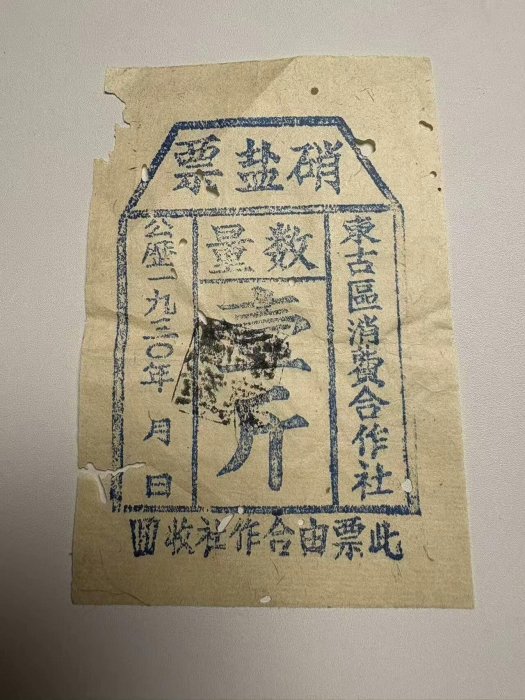 硝盐票
東古區消費合作社
数量
壹斤
公歷一九三〇年 月 日
此票由合作社收回